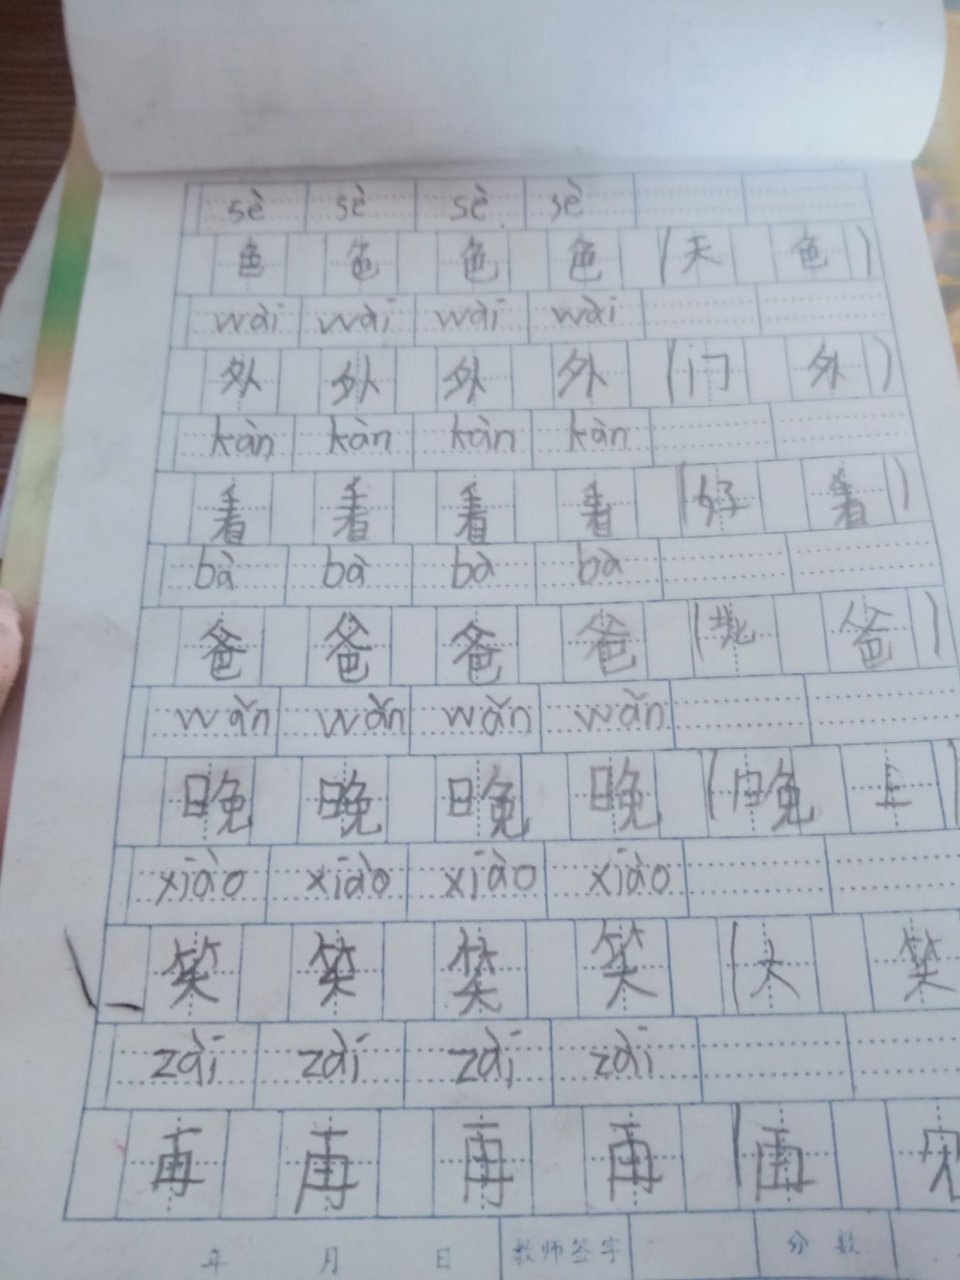 sè sè sè sè
色 色 色 色 (天 色)
wài wài wài wài
外 外 外 外 (门 外)
kàn kàn kàn kàn
看 看 看 看 (好 看)
bà bà bà bà
爸 爸 爸 爸 ( 爸)
wǎn wǎn wǎn wǎn
晚 晚 晚 晚 (晚 上)
xiào xiào xiào xiào
笑 笑 笑 笑 (大 笑
zài zài zài zài
再 再 再 再 (再 见
年 月 日 教师签字 分数